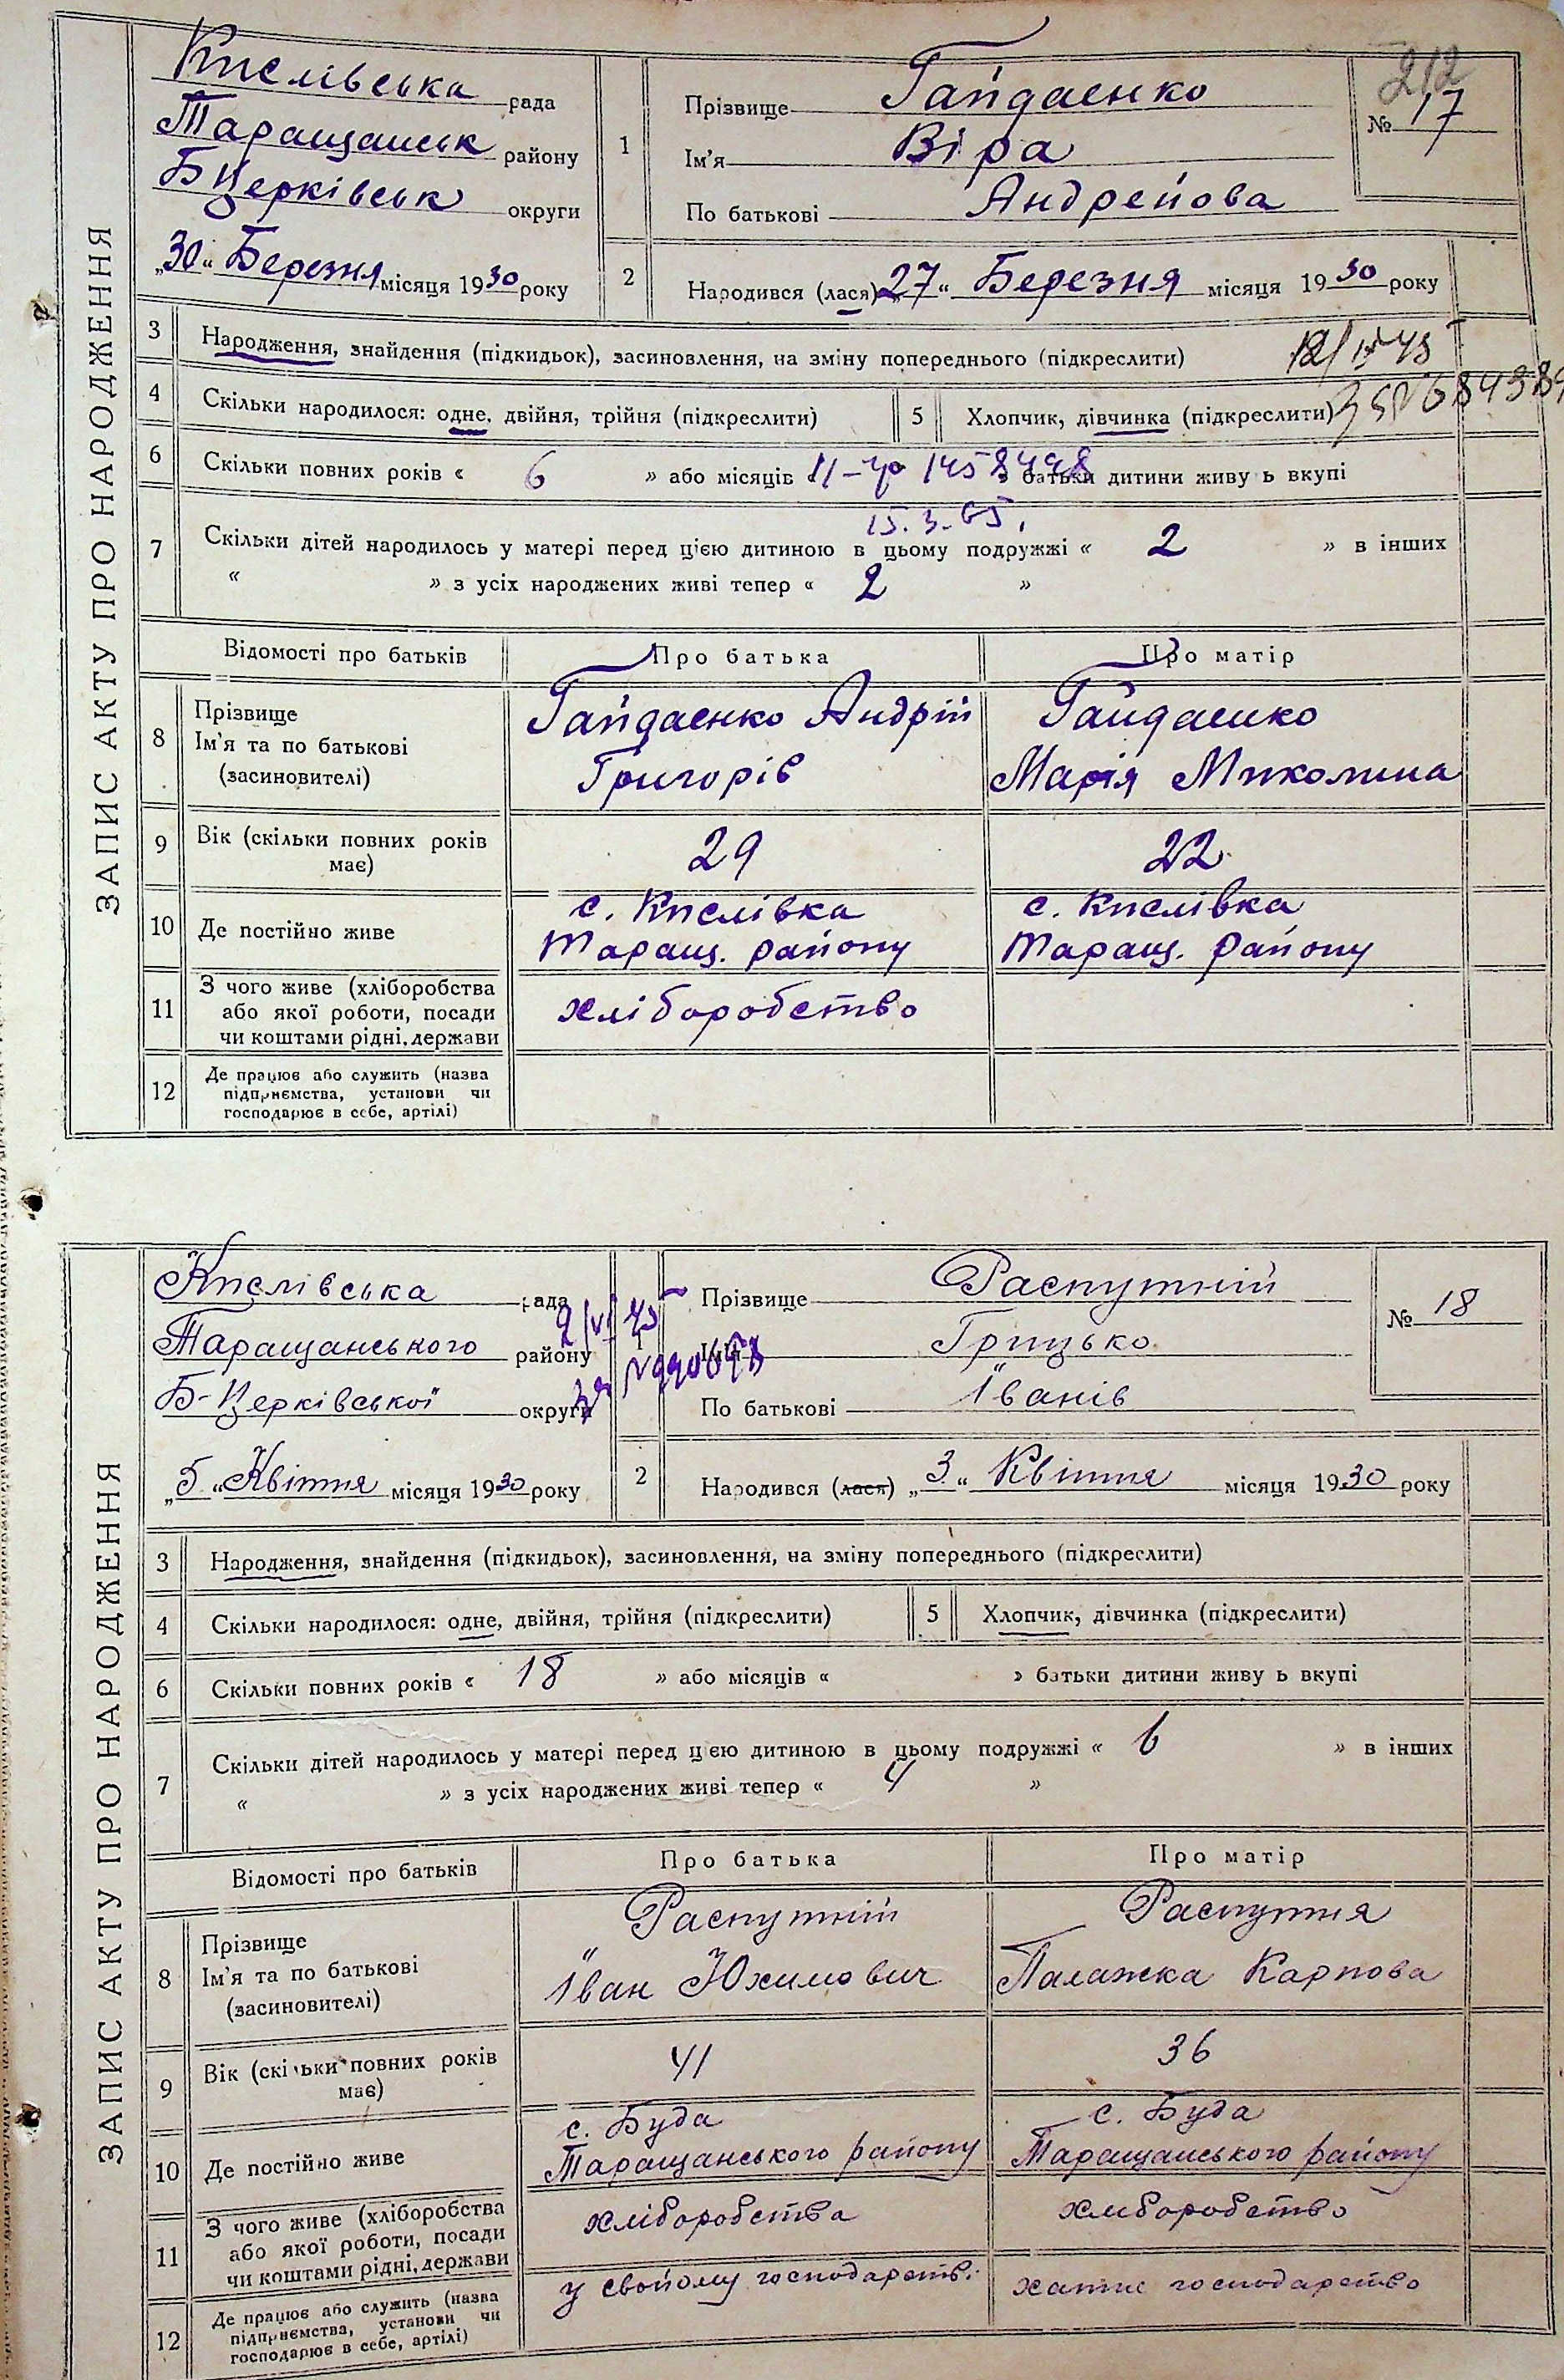 ЗАПИС АКТУ ПРО НАРОДЖЕННЯ
Кислівська рада
Таращанськ району
БЦерківськ округи
„30“ Березня місяця 1930 року
1
Прізвище Гайдаенко
Ім'я Віра
По батькові Андрейова
212
№ 17
2
Народився (лася) „27“ Березня місяця 1930 року
3 Народження, знайдення (підкидьок), засиновлення, на зміну попереднього (підкреслити)
4 Скільки народилося: одне, двійня, трійня (підкреслити)
5 Хлопчик, дівчинка (підкреслити)
6 Скільки повних років « 6 » або місяців батьки дитини живу ь вкупі
15.3.65.
7 Скільки дітей народилось у матері перед цією дитиною в цьому подружжі « 2 » в інших
« » з усіх народжених живі тепер « 2 »
Відомості про батьків Про батька Про матір
8 Прізвище
Ім'я та по батькові
(засиновителі)
Гайдаенко Андрій
Григорів
Гайдаенко
Марія Миколина
9 Вік (скільки повних років
має)
29 22
10 Де постійно живе
с. Кислівка
Таращ. району
с. Кислівка
Таращ. району
11 З чого живе (хліборобства
або якої роботи, посади
чи коштами рідні, держави
хліборобство
12 Де працює або служить (назва
підприємства, установи чи
господарює в себе, артілі)
ЗАПИС АКТУ ПРО НАРОДЖЕННЯ
Кислівська рада
Таращанського району
Б-Церківської округи
„5“ Квітня місяця 1930 року
Прізвище Распутній
Грицько
По батькові Іванів
№ 18
2
Народився (лася) „3“ Квітня місяця 1930 року
3 Народження, знайдення (підкидьок), засиновлення, на зміну попереднього (підкреслити)
4 Скільки народилося: одне, двійня, трійня (підкреслити)
5 Хлопчик, дівчинка (підкреслити)
6 Скільки повних років « 18 » або місяців « » батьки дитини живу ь вкупі
7 Скільки дітей народилось у матері перед цією дитиною в цьому подружжі « 6 » в інших
« » з усіх народжених живі тепер « 4 »
Відомості про батьків Про батька Про матір
8 Прізвище
Ім'я та по батькові
(засиновителі)
Распутній
Іван Юхимович
Распутня
Палажка Карпова
9 Вік (скільки повних років
має)
41 36
10 Де постійно живе
с. Буда
Таращанського району
с. Буда
Таращанського району
11 З чого живе (хліборобства
або якої роботи, посади
чи коштами рідні, держави
хліборобства
хліборобство
12 Де працює або служить (назва
підприємства, установи чи
господарює в себе, артілі)
у свойому господарстві
хатне господарство